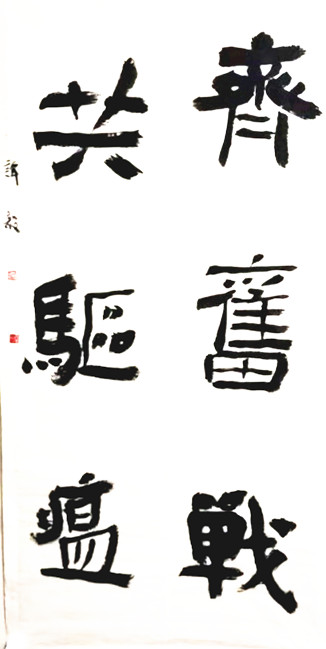 齊奮戰
共驅瘟